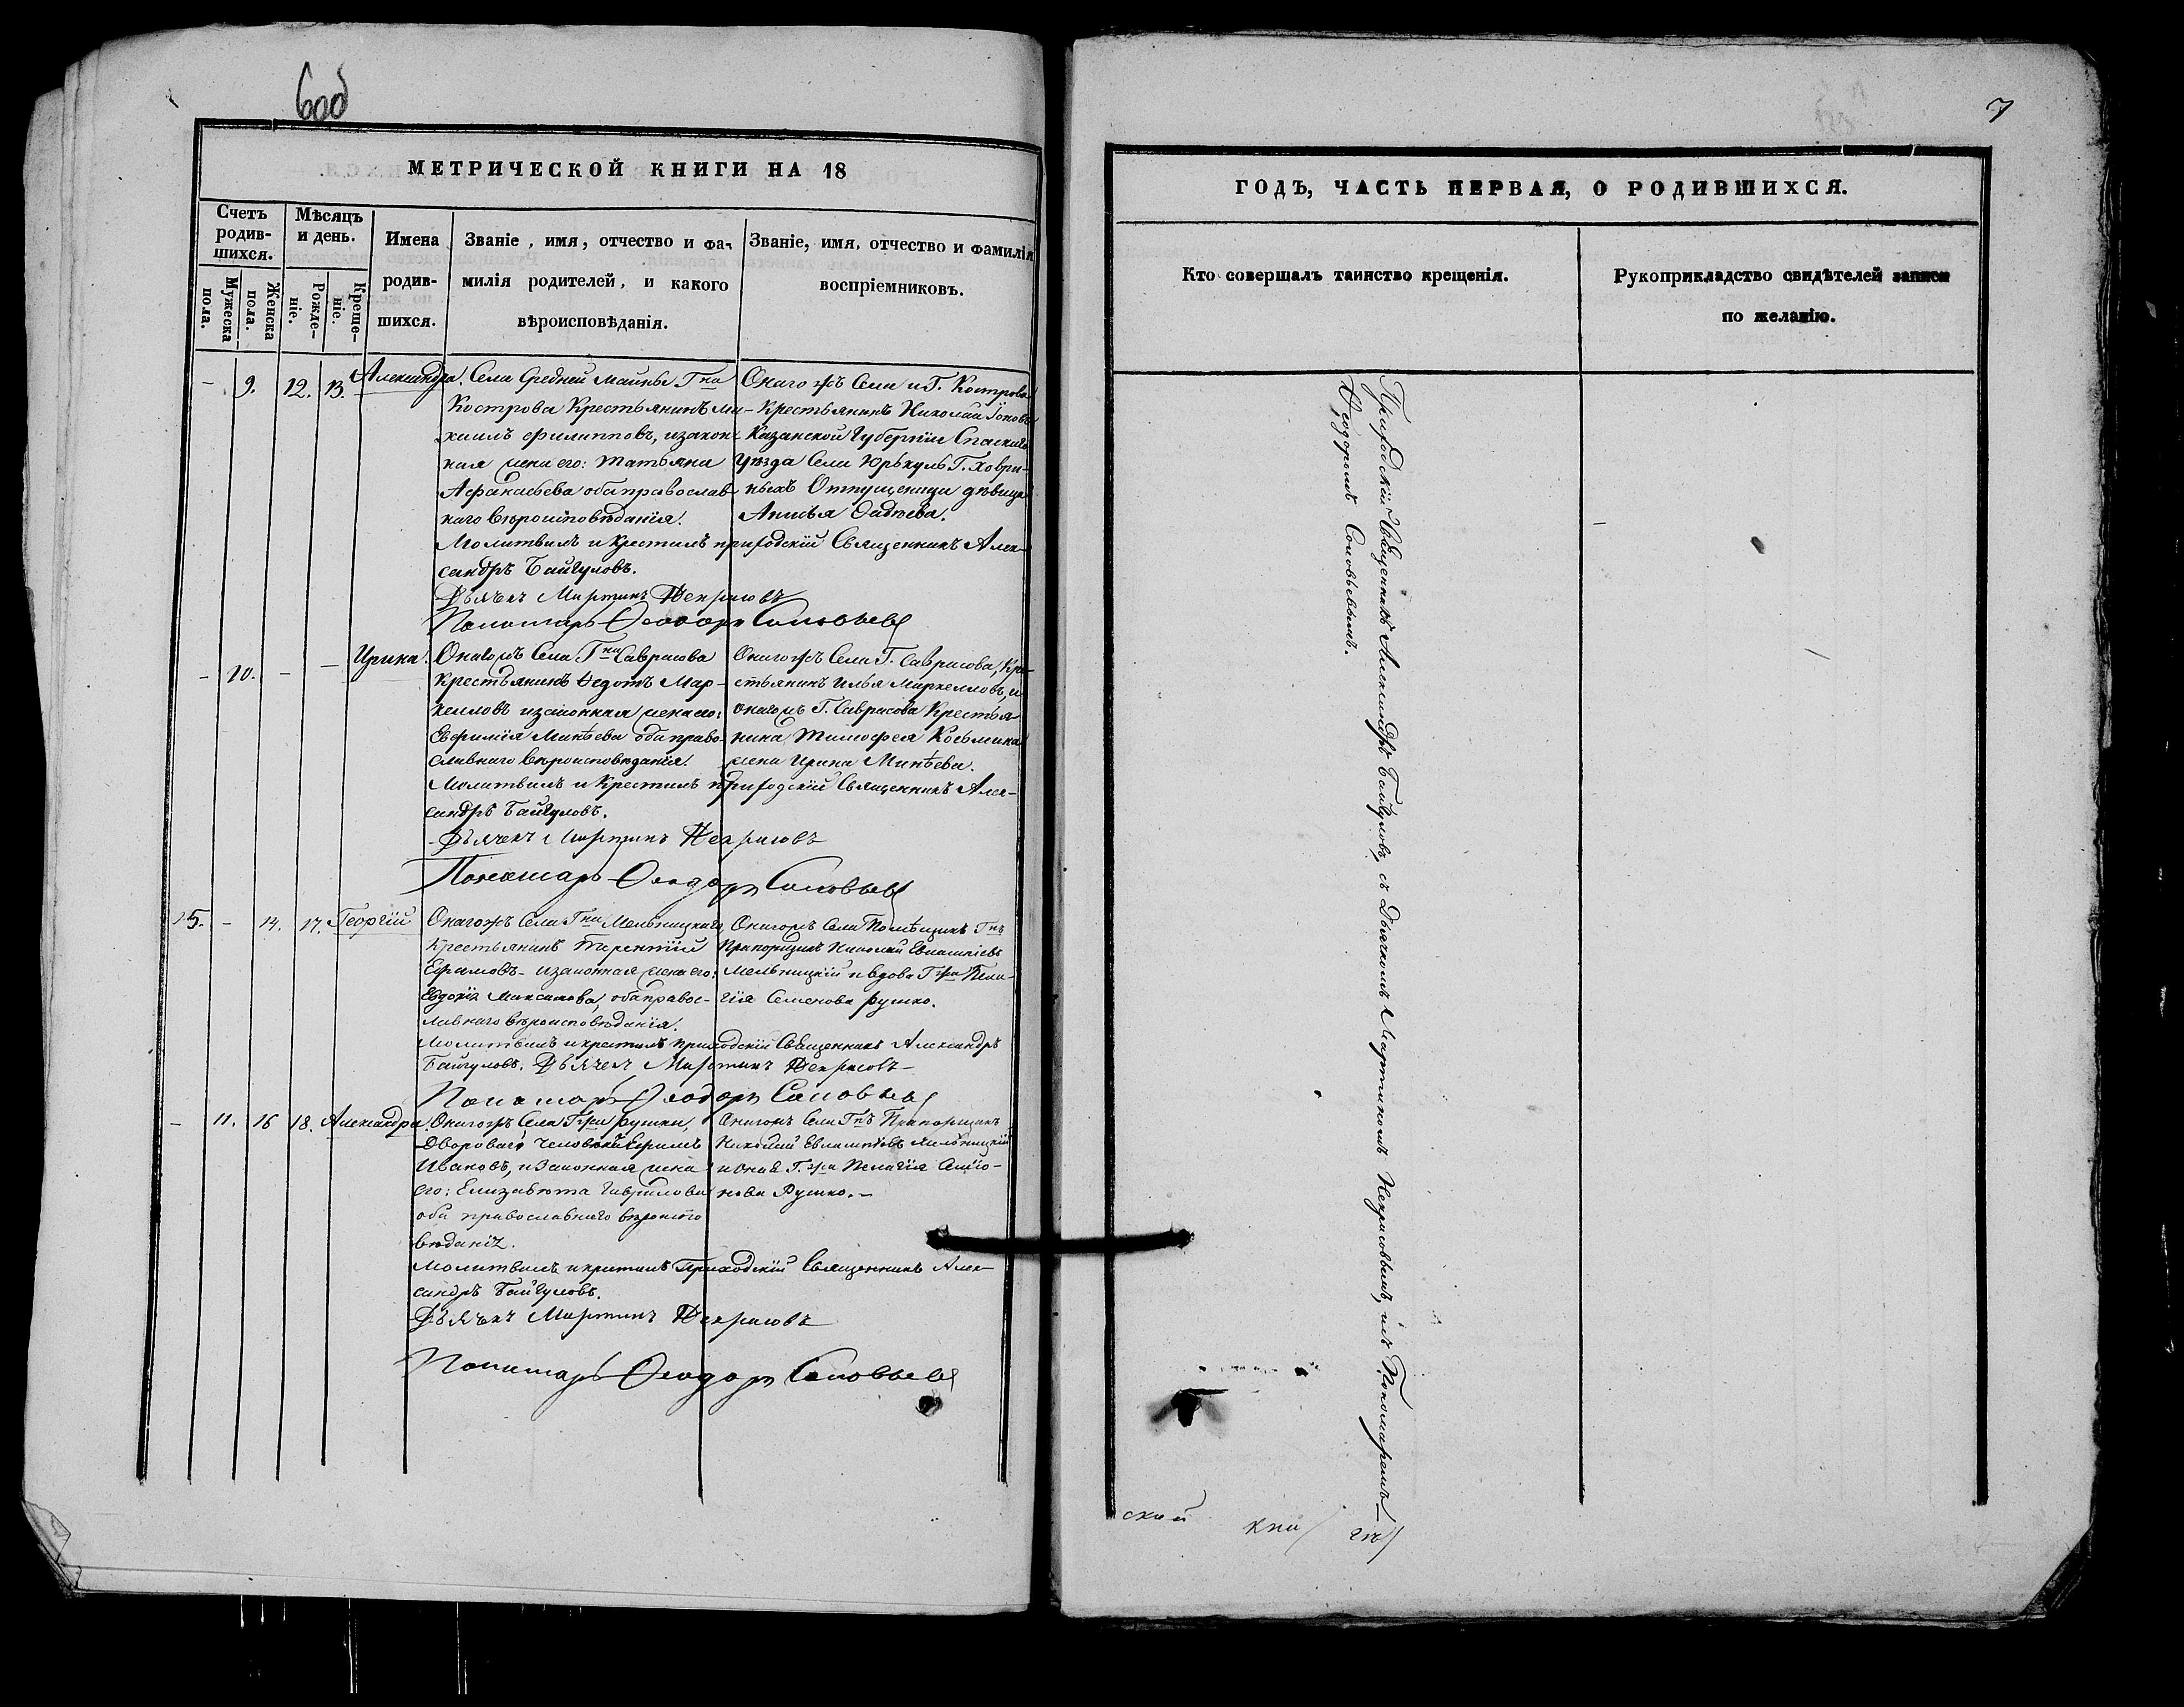 6об
МЕТРИЧЕСКОЙ КНИГИ НА 18
Счетъ родив-шихся.
Мѣсяцъ и день.
Мужеска пола.
Женска пола.
Рожде-ніе.
Креще-ніе.
Имена
родив-
шихся.
Званіе, имя, отчество и фа-
милія родителей, и какого
вѣроисповѣданія.
Званіе, имя, отчество и фамилія
воспріемниковъ.
- 9. 12. 13. Александра.
Села Средней Майны Гна
Кострова Крестьянинъ Ми-
хаилъ Филипповъ, изакон-
ная жена его: Татьяна
Афанасьева оба православ
наго вѣроисповѣданія.
Онаго жъ Села и Г. Кострова
Крестьянинъ Николай Іоновъ
Казанской Губерніи Спаскаго
Уѣзда Села Юрькуль Г. Ховри-
ныхъ Отпущеница дѣвица
Анисья
Молитвилъ и крестилъ приходскій Священникъ Алек-
сандръ Байгуловъ.
Дьячекъ Мартинъ Некрасовъ
Пономарь Феодоръ Соловьевъ
- 10. - - Ирина.
Онагожъ Села Гна Саврасова
Крестьянинъ Федотъ Мар-
келловъ изаконная жена его:
Евфимія Минѣева оба право-
славнаго вѣроисповѣданія.
Онагожъ Села Г. Саврасова, Кре-
стьянинъ Илья Маркелловъ, и
онагожъ Г. Саврасова Крестья-
нина Тимофея Козьмина
жена Ирина Минѣева.
Молитвилъ и Крестилъ приходскій Священникъ Алек-
сандръ Байгуловъ.
Дьячекъ Мартинъ Некрасовъ
Пономарь Феодоръ Соловьевъ
15. - 14. 17. Георгій
Онагожъ Села Гна Мельницкаго
Крестьянинъ Терентій
Ефимовъ изаконная жена его:
Евдокія Максимова, оба правос-
лавнаго вѣроисповѣданія.
Онагожъ Села Помѣщикъ Гнъ
Прапорщикъ Николай Евлампіевъ
Мельницкій и вдова Гжа Пела-
гія Семенова Рушко.
Молитвилъ и крестилъ приходскій Священникъ Александръ
Байгуловъ. Дьячекъ Мартинъ Некрасовъ
Пономарь Феодоръ Соловьевъ
- 11. 16 18. Александра.
Онагожъ Села Гжи Рушки,
Двороваго человѣка Ефимъ
Ивановъ, и Законная жена
его: Елизавета Гаврилова
оба православнаго вѣроиспо
вѣданія.
Онагожъ Села Гнъ Прапорщикъ
Николай Евлампіевъ Мельницкій
и Она Г. жа Пелагія Семіо-
нова Рушко.-
Молитвилъ и крестилъ Приходскій Священникъ Алек-
сандръ Байгуловъ.
Дьячекъ Мартинъ Некрасовъ
Пономарь Феодоръ Соловьевъ
7
ГОДЪ, ЧАСТЬ ПЕРВАЯ, О РОДИВШИХСЯ.
Кто совершалъ таинство крещенія.
Рукоприкладство свидѣтелей записи
по желанію.
Приходскій Священникъ Александръ Байгуловъ, съ Дьячкомъ Мартиномъ Некрасовымъ, и съ Пономаремъ
Феодоромъ Соловьевымъ.
ской кни гѣ